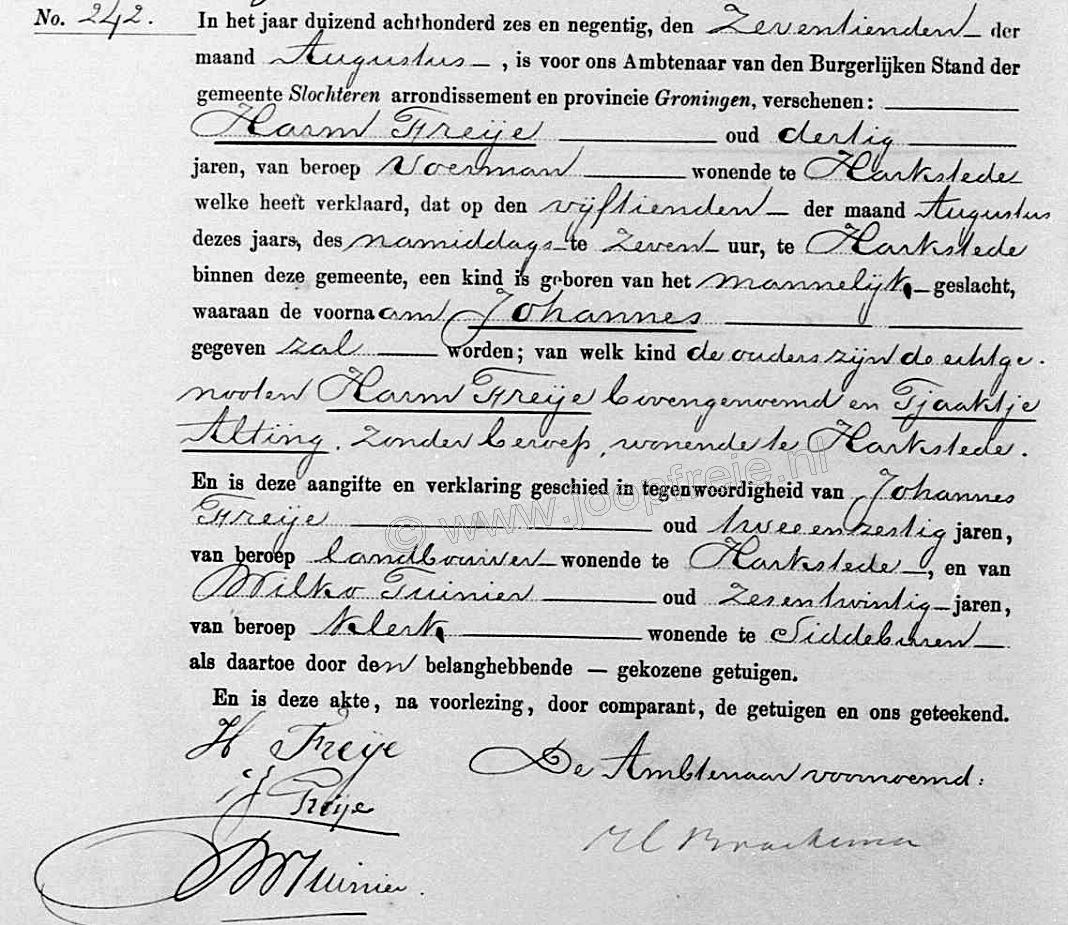 No. 242. In het jaar duizend achthonderd zes en negentig, den Zeventienden der
maand Augustus, is voor ons Ambtenaar van den Burgerlijken Stand der
gemeente Slochteren arrondissement en provincie Groningen, verschenen:
Harm Freije oud dertig
jaren, van beroep Voerman wonende te Harkstede
welke heeft verklaard, dat op den vijftienden der maand Augustus
dezes jaars, des namiddags te zeven uur, te Harkstede
binnen deze gemeente, een kind is geboren van het mannelijk geslacht,
waaraan de voornaam Johannes
gegeven zal worden; van welk kind de ouders zijn de echtge-
nooten Harm Freije bovengenoemd en Tjaaktje
Alting, zonder beroep, wonende te Harkstede.
En is deze aangifte en verklaring geschied in tegenwoordigheid van Johannes
Freije oud tweeenzestig jaren,
van beroep landbouwer wonende te Harkstede, en van
Wilko Tuinier oud zesentwintig jaren,
van beroep klerk wonende te Siddeburen
als daartoe door den belanghebbende — gekozene getuigen.
En is deze akte, na voorlezing, door comparant, de getuigen en ons geteekend.
H Freije
De Ambtenaar voornoemd:
J Freije
W Tuinier.
© www.joopfreie.nl